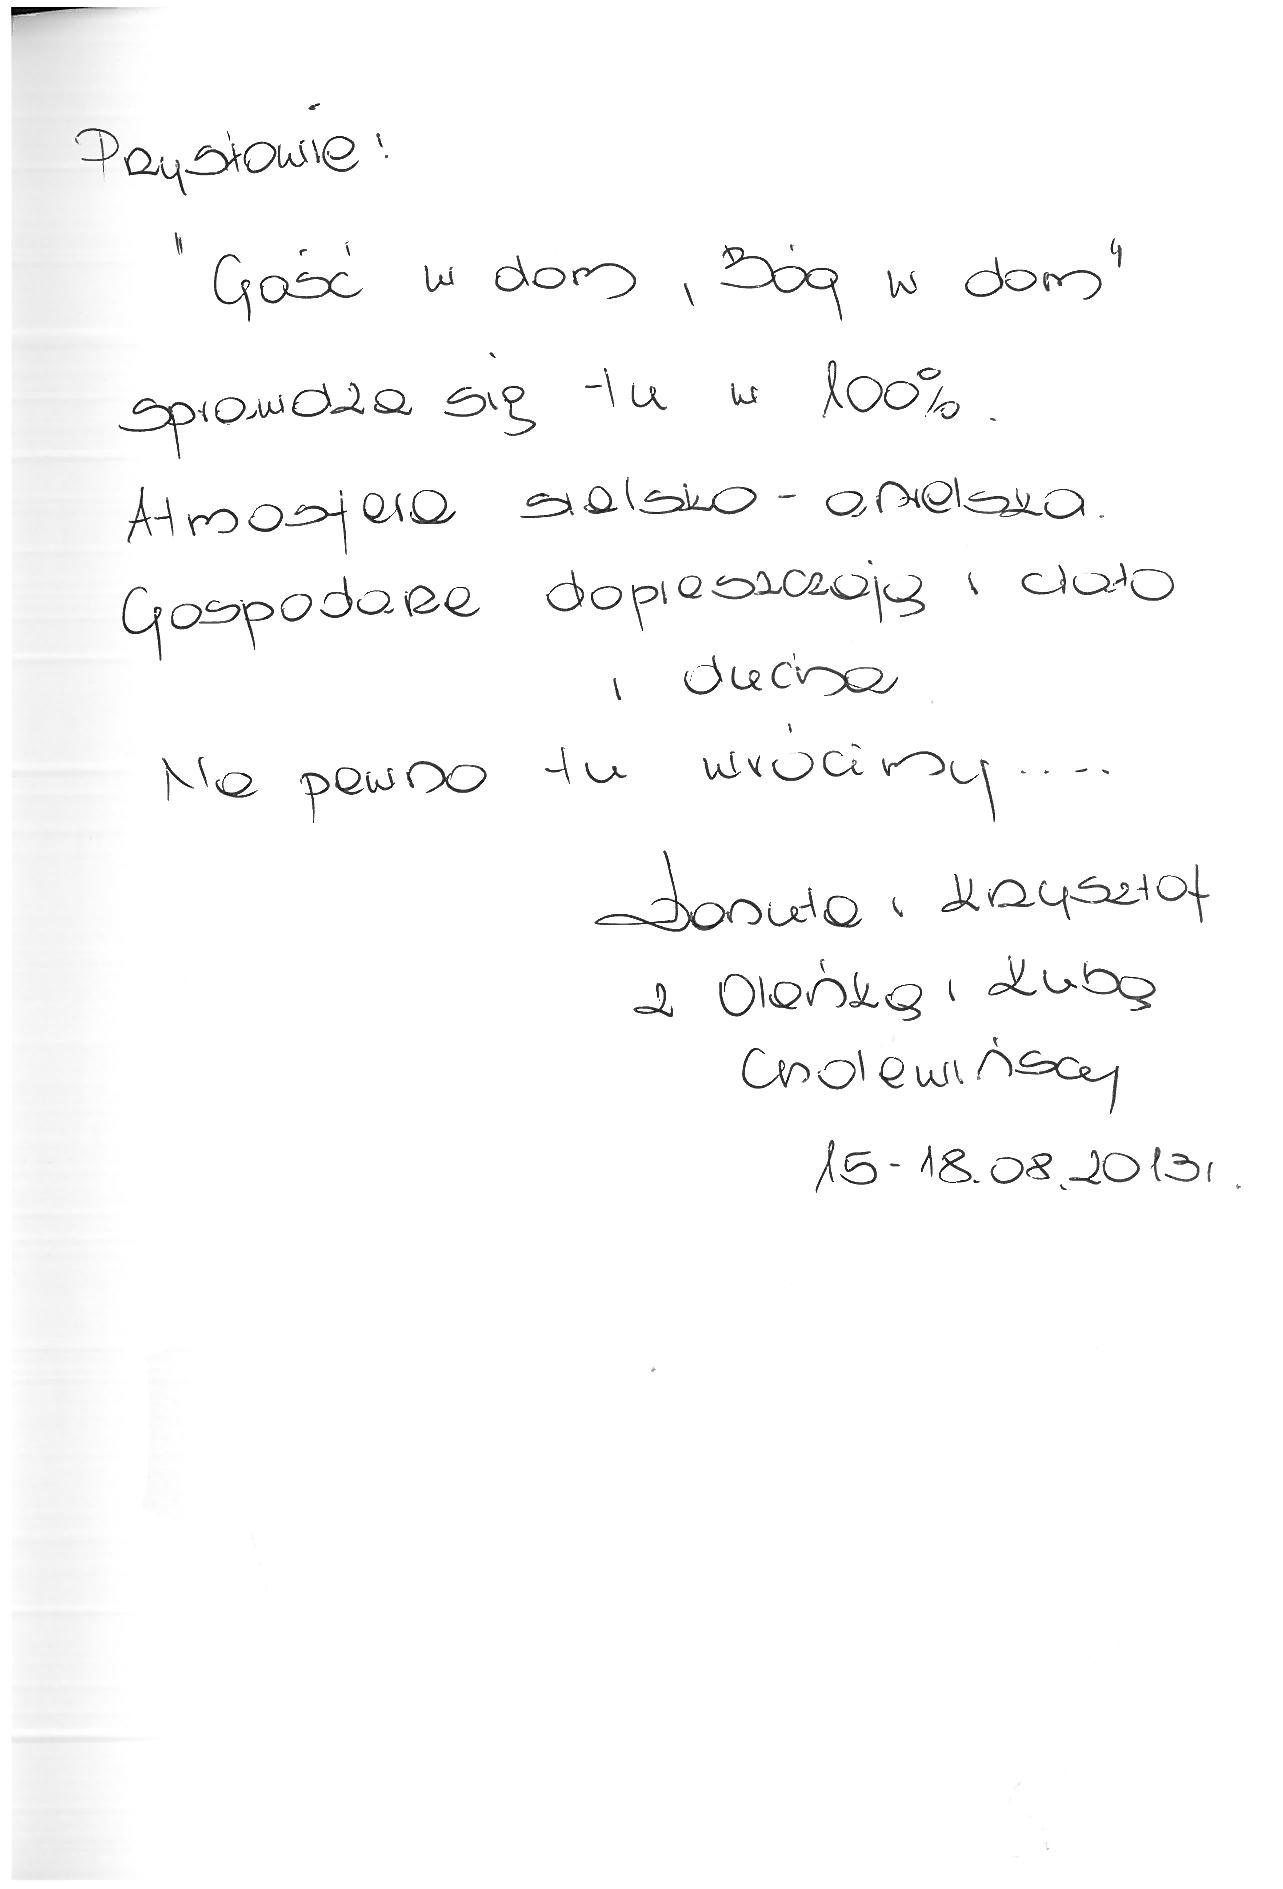 Przysłowie:
"Gość w dom, Bóg w dom"
sprawdza się tu w 100%.
Atmosfera sielsko - anielska.
Gospodarze dopieszczają i ciało
i ducha
Na pewno tu wrócimy....
Danuta i Krzysztof
z Oleńką i Kubą
Cholewińscy
15-18.08.2013r.